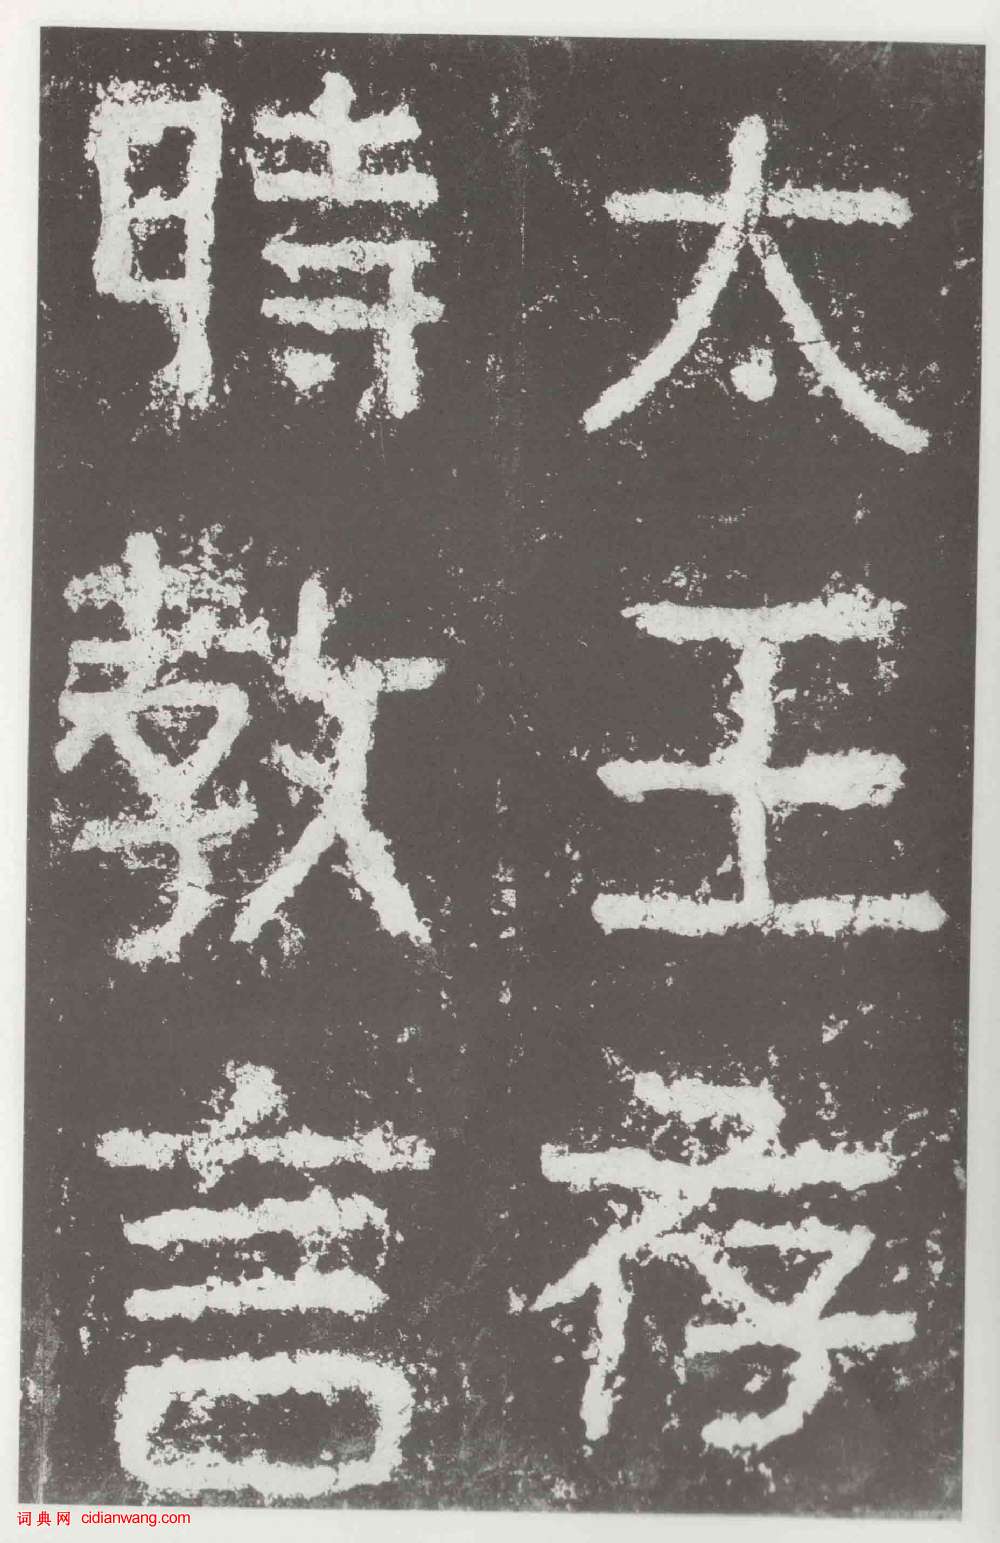 太王存
時教言
词典网 cidianwang.com